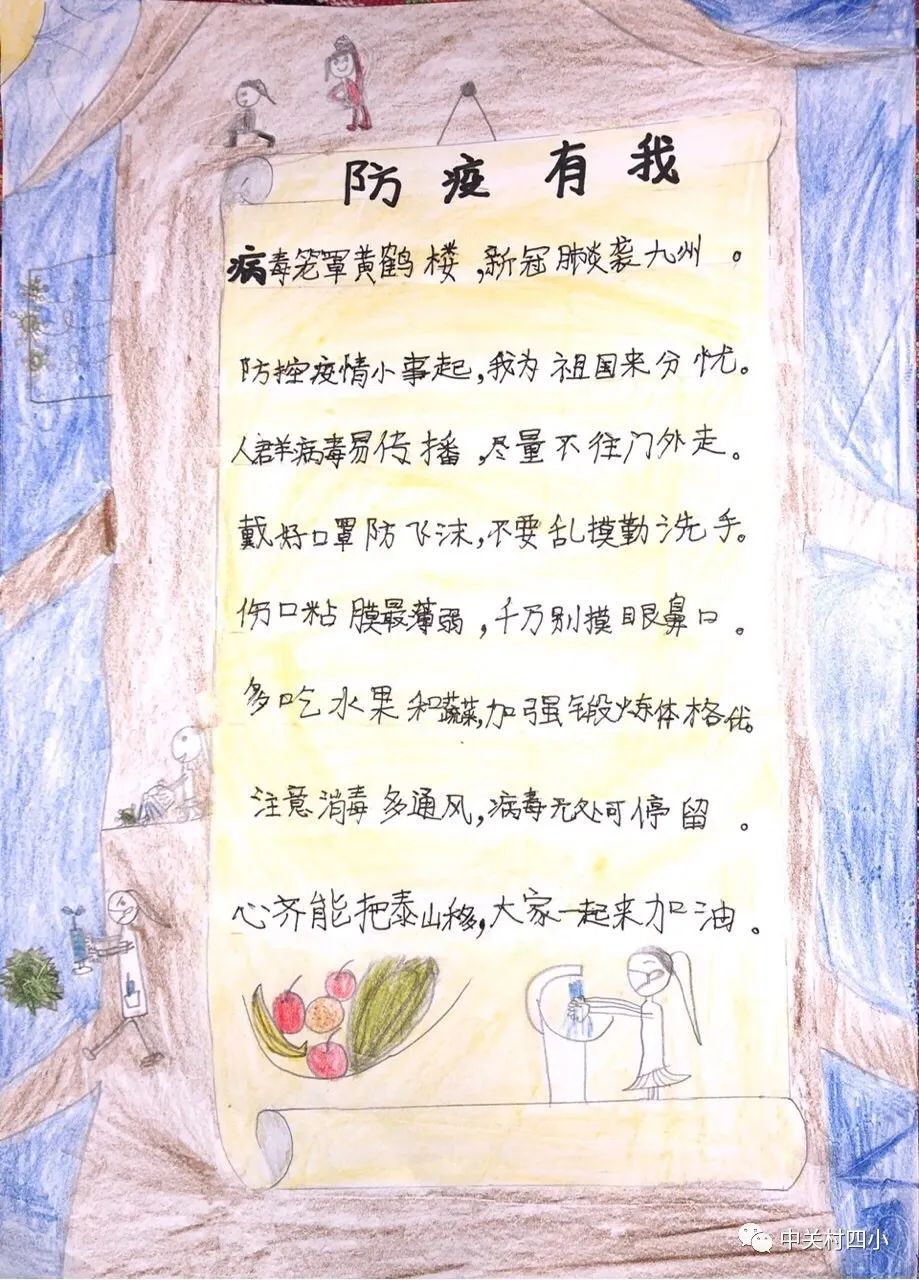 防疫有我
病毒笼罩黄鹤楼,新冠肺炎袭九州。
防控疫情小事起,我为祖国来分忧。
人群病毒易传播,尽量不往门外走。
戴好口罩防飞沫,不要乱摸勤洗手。
伤口粘膜最薄弱,千万别摸眼鼻口。
多吃水果和蔬菜,加强锻炼体格优。
注意消毒多通风,病毒无处可停留。
心齐能把泰山移,大家一起来加油。
中关村四小